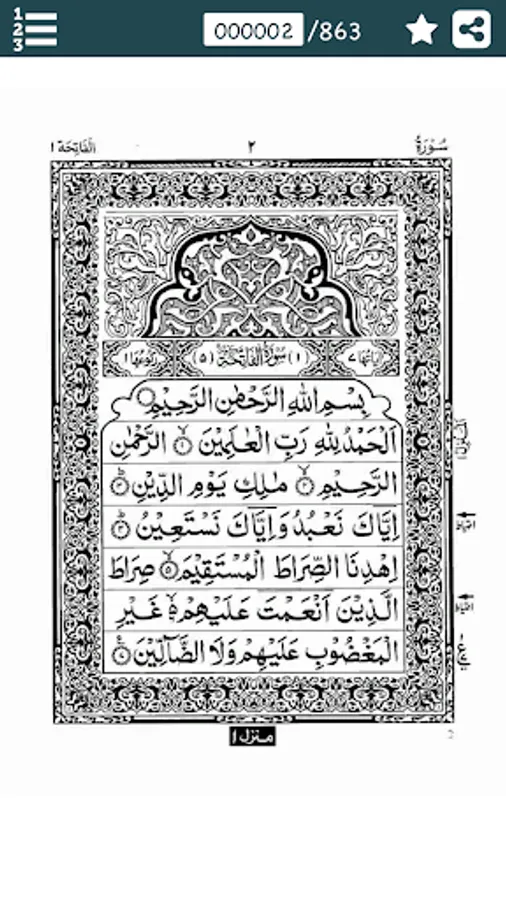 1
2
3
000002 /863
سُوْرَةُ ٢ اَلْفَاتِحَة ١
اٰیَاتُهَا ٧ (١) سُوْرَةُ الْفَاتِحَةِ (٥) رُکُوْعُهَا ١
بِسْمِ اللّٰهِ الرَّحْمٰنِ الرَّحِیْمِ
اَلْحَمْدُ لِلّٰهِ رَبِّ الْعٰلَمِیْنَ ۙ‏﴿١﴾ الرَّحْمٰنِ
الرَّحِیْمِ ۙ‏﴿٢﴾ مٰلِكِ یَوْمِ الدِّیْنِ ؕ‏﴿٣﴾
اِیَّاكَ نَعْبُدُ وَ اِیَّاكَ نَسْتَعِیْنُ ؕ‏﴿٤﴾
اِهْدِنَا الصِّرَاطَ الْمُسْتَقِیْمَ ۙ‏﴿٥﴾ صِرَاطَ
الَّذِیْنَ اَنْعَمْتَ عَلَیْهِمْ ۙ۬‏﴿٦﴾ غَیْرِ
الْمَغْضُوْبِ عَلَیْهِمْ وَ لَا الضَّآلِّیْنَ ﴿٧﴾
منزل ١